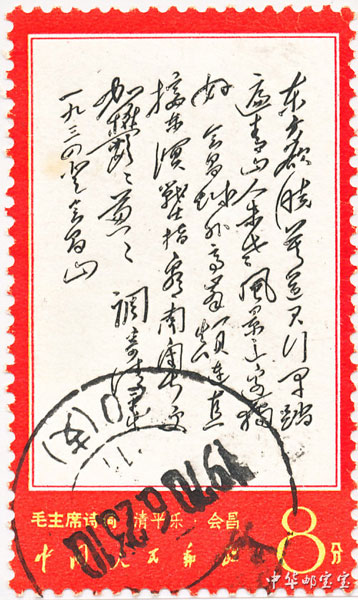 东方欲晓莫道君行早踏
遍青山人未老風景这边独
好会昌城外高峯颠连直
接东溟戰士指看南粤更
加鬱々葱々 調寄清平乐
一九三四登会昌山
毛主席诗词 清平乐·会昌
中国人民邮政
8分
中华邮宝宝